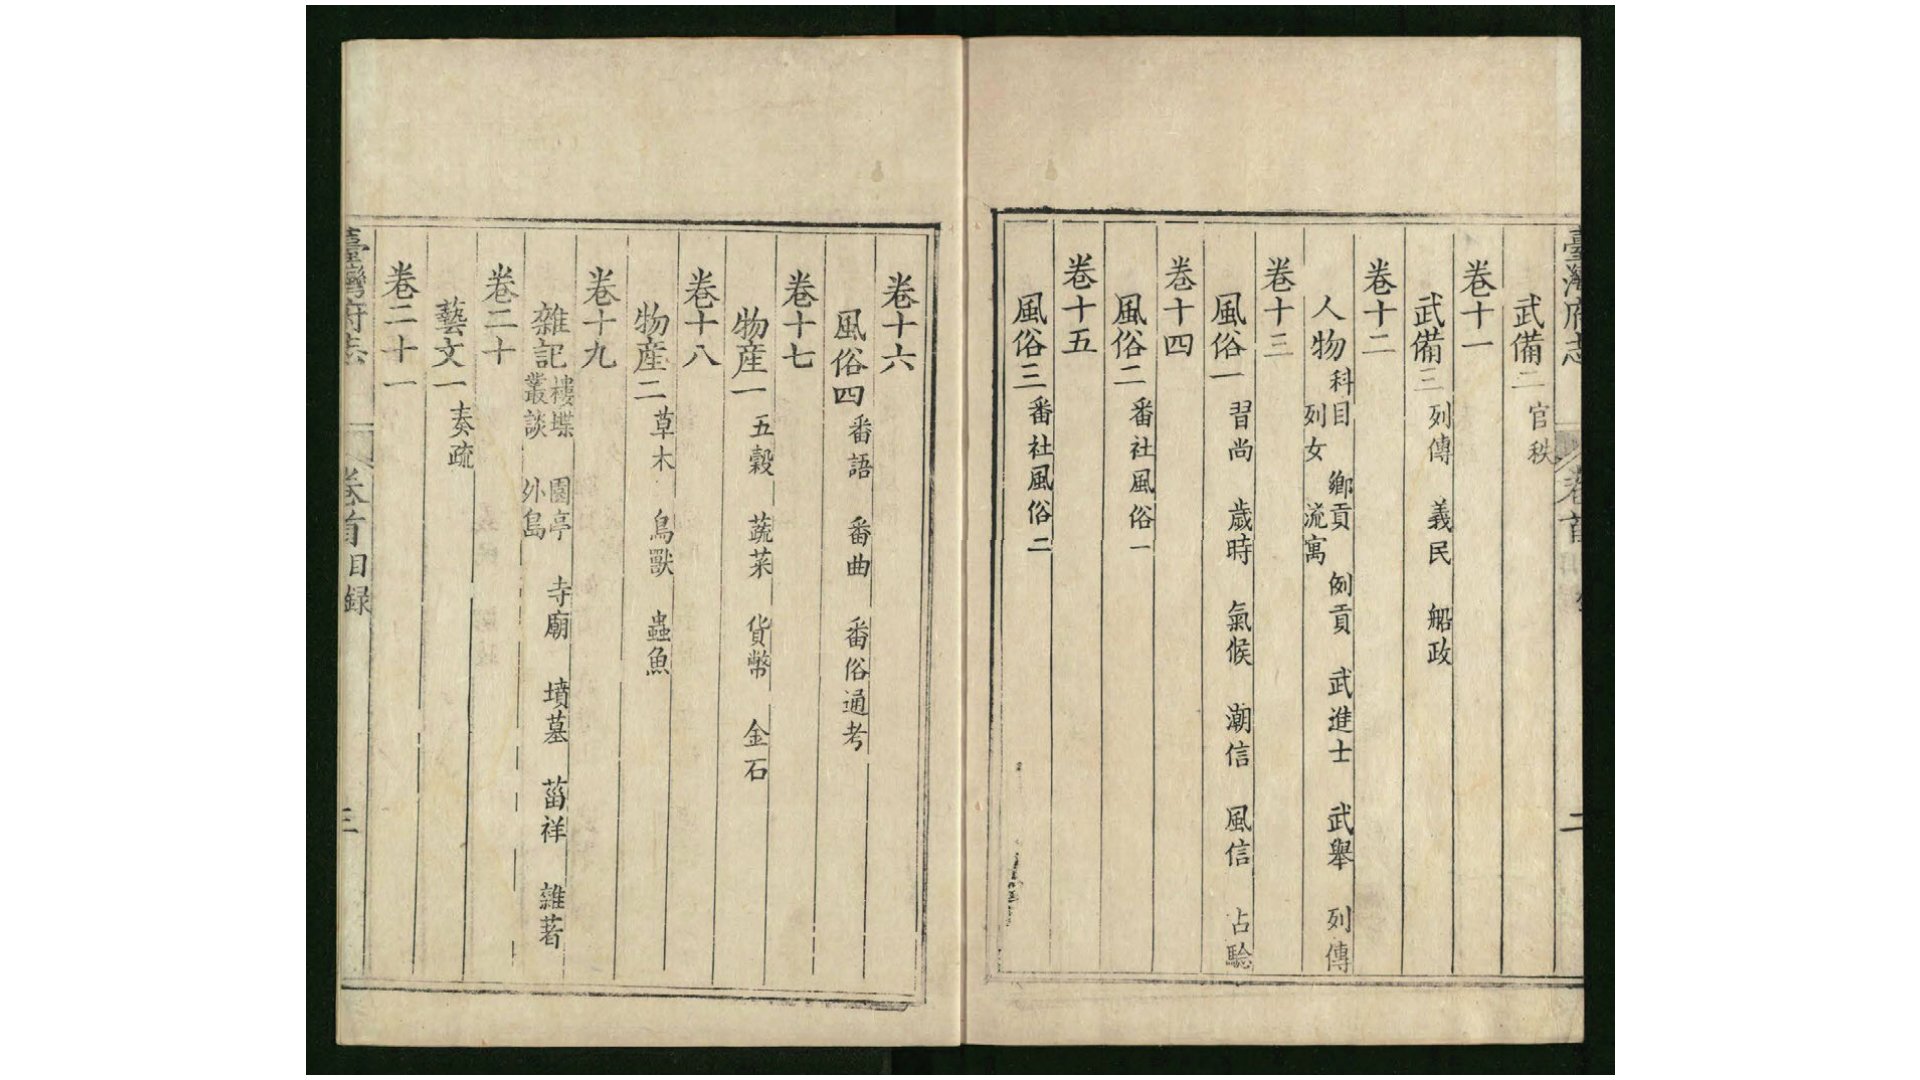 臺灣府志 卷首 二
武備二 官秩
卷十一
武備三 列傳 義民 船政
卷十二
人物 科目 鄉貢 例貢 武進士 武舉 列傳
列女 流寓
卷十三
風俗一 習尚 歲時 氣候 潮信 風信 占驗
卷十四
風俗二 番社風俗一
卷十五
風俗三 番社風俗二
卷十六
風俗四 番語 番曲 番俗通考
卷十七
物産一 五穀 蔬菜 貨幣 金石
卷十八
物産二 草木 鳥獸 蟲魚
卷十九
雜記 樓堞 園亭 寺廟 墳墓 菑祥 雜著
叢談 外島
卷二十
藝文一 奏疏
卷二十一
臺灣府志 卷首 目録 三